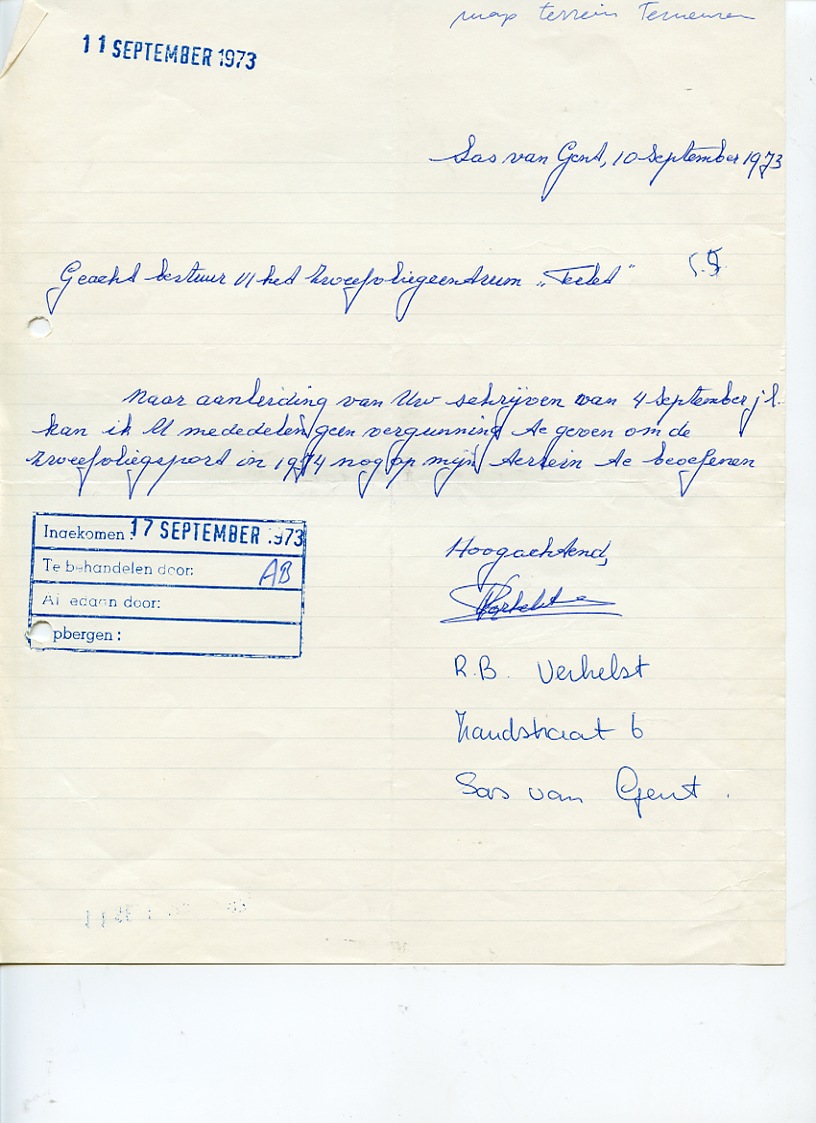 map terrein Terneuzen
11 SEPTEMBER 1973
Sas van Gent, 10 September 1973
Geacht bestuur v/ het zweefvliegcentrum „Terlet"
Naar aanleiding van Uw schrijven van 4 September jl.
kan ik U mededelen geen vergunning te geven om de
zweefvliegsport in 1974 nog op mijn terrein te beoefenen
Hoogachtend,
Ingekomen: 17 SEPTEMBER 1973
Te behandelen door: AB
Afgedaan door:
Opbergen:
R.B. Verhelst
Zandstraat 6
Sas van Gent.